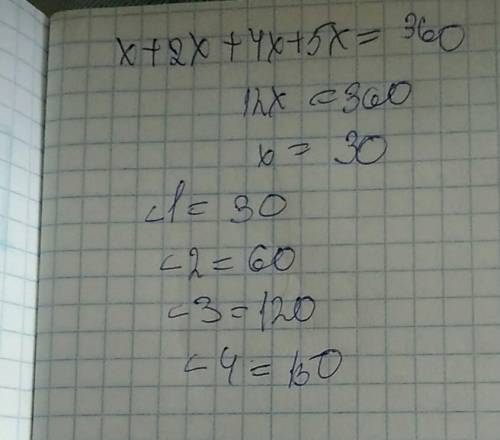 x+2x+4x+5x=360
12x=360
x=30
∠1=30
∠2=60
∠3=120
∠4=150